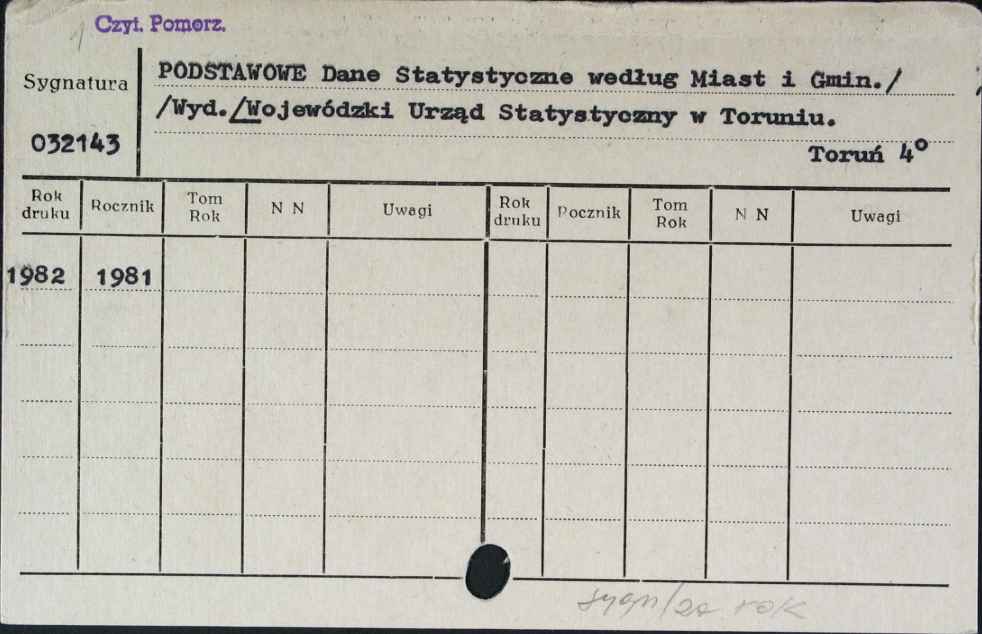 Czyt. Pomorz.
Sygnatura
032143
PODSTAWOWE Dane Statystyczne według Miast i Gmin./
/Wyd./Wojewódzki Urząd Statystyczny w Toruniu.
Toruń 4°
Rok druku Rocznik Tom Rok N N Uwagi Rok druku Rocznik Tom Rok N N Uwagi
1982 1981
sygn/za rok